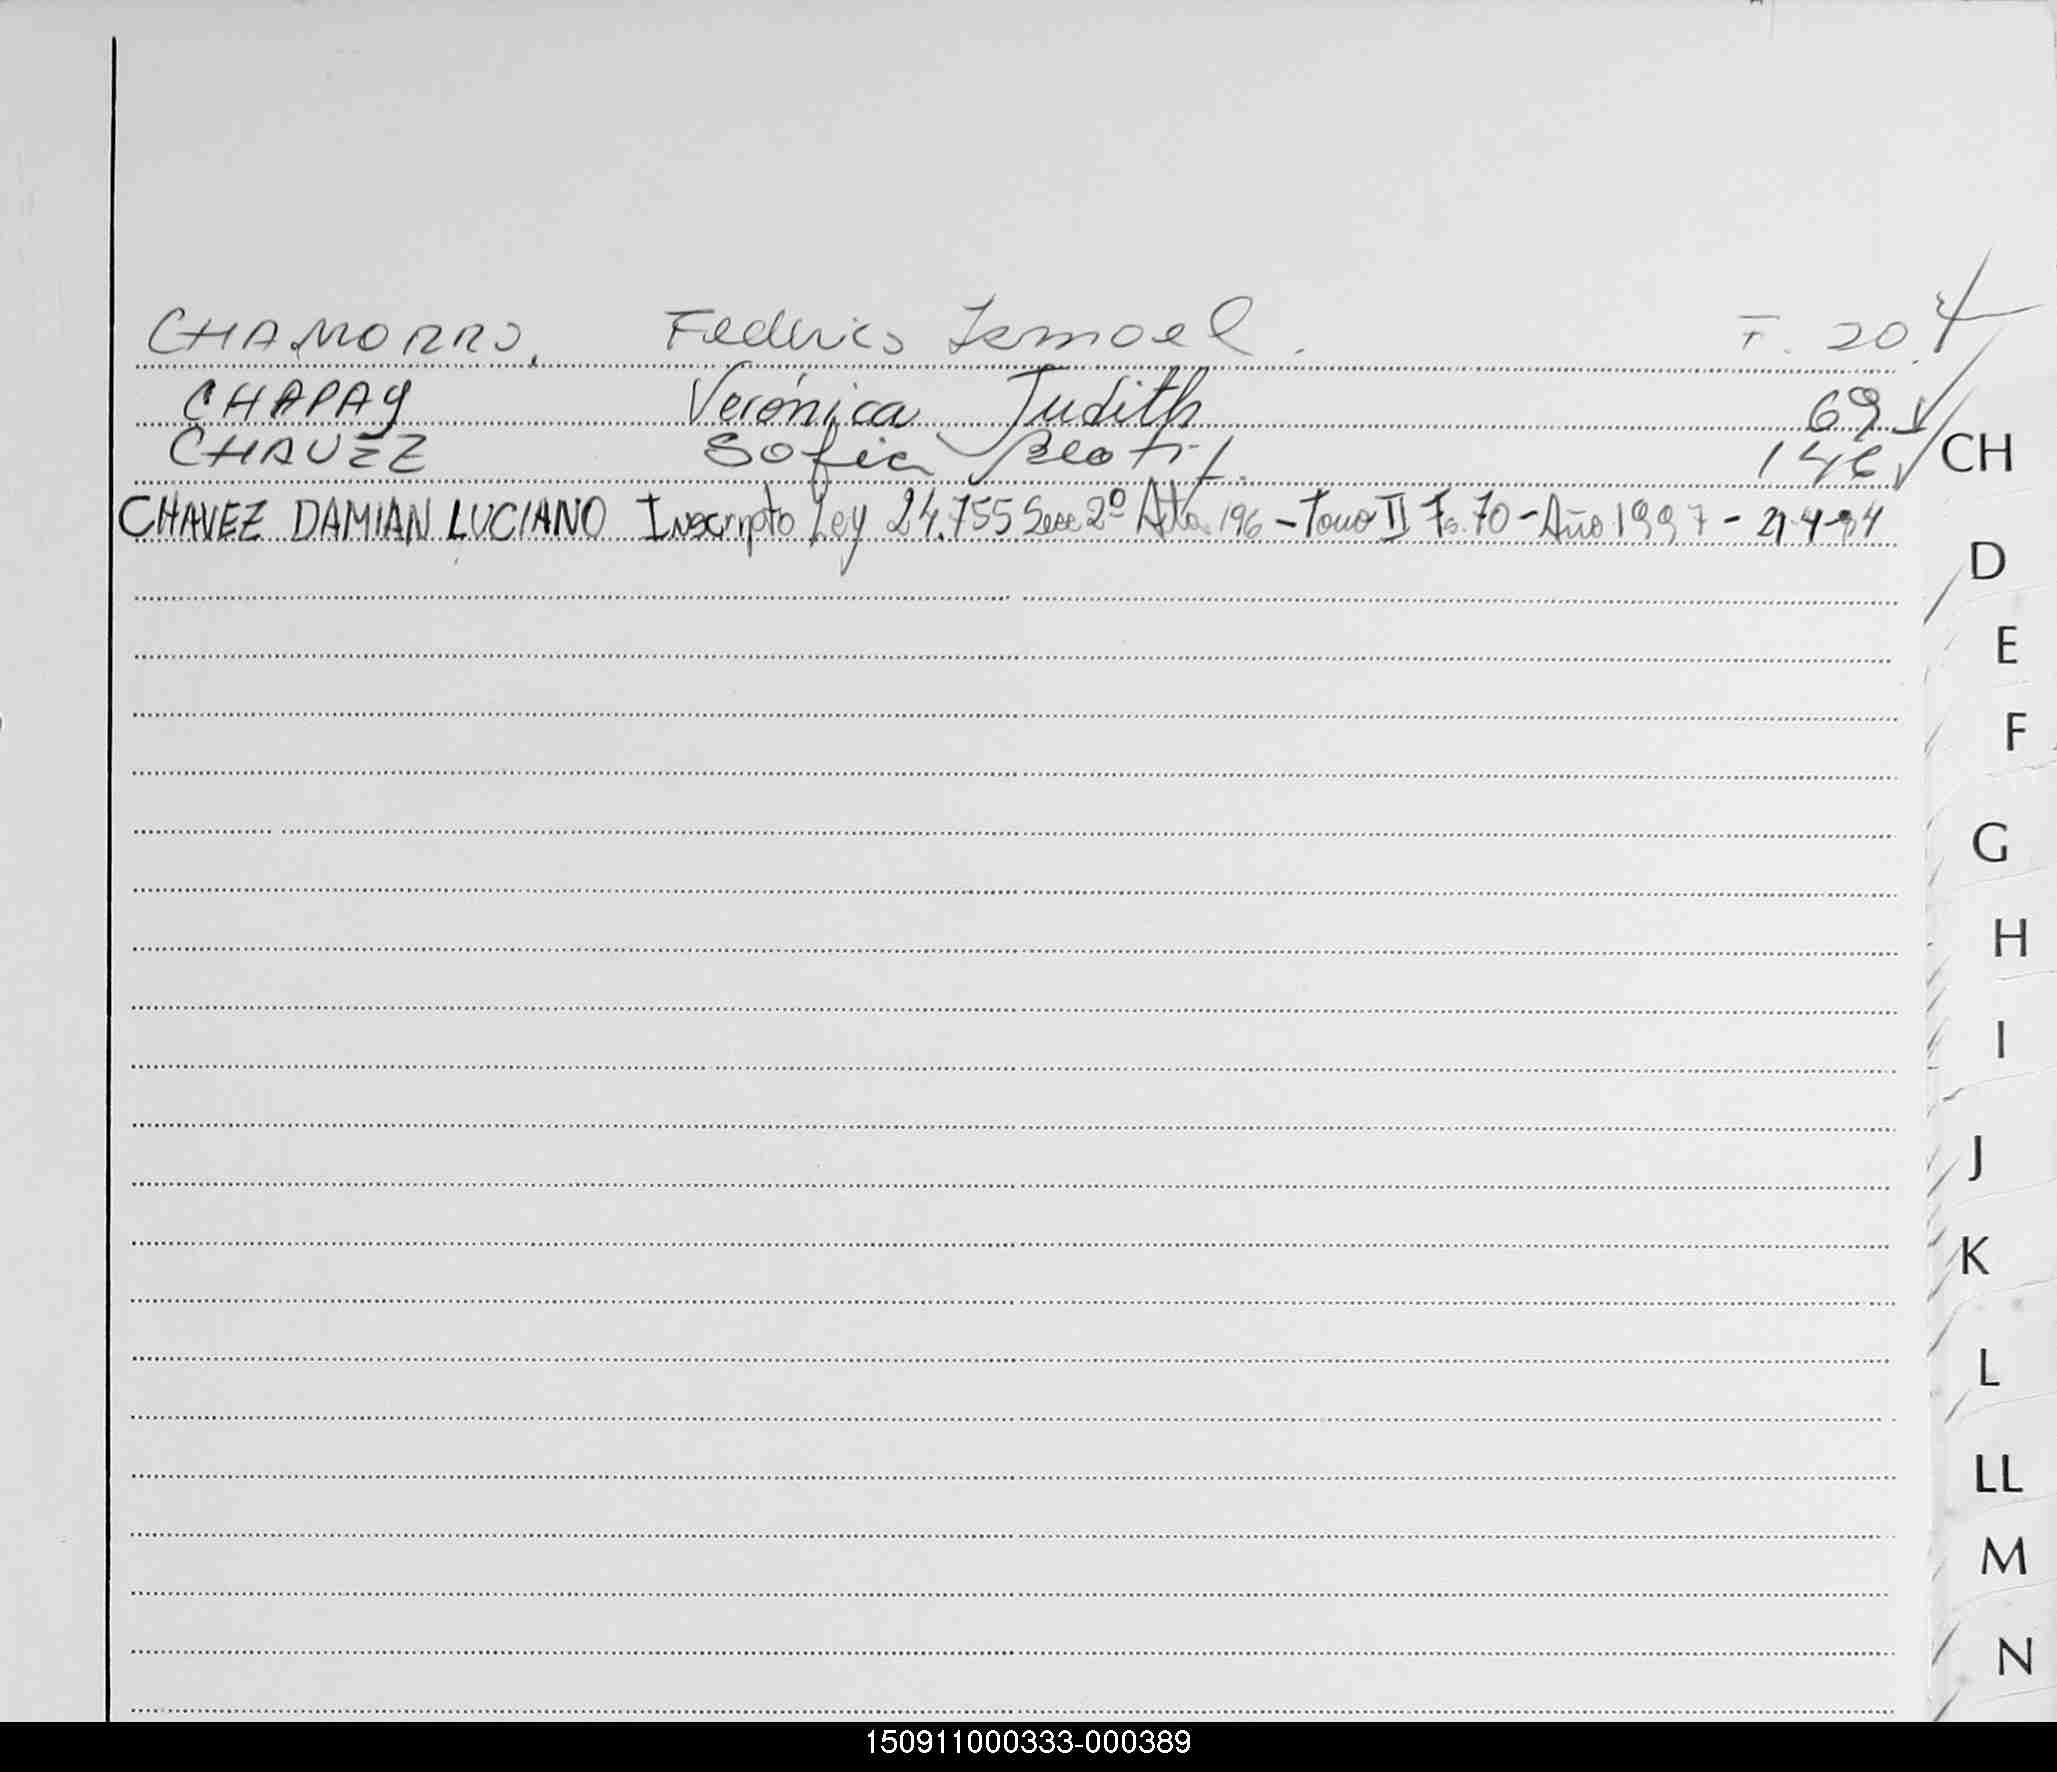 CHAMORRO. Federico Ismael. F. 20.
CHAPAY Verónica Judith 69
CHAVEZ Sofia Beatriz. 146
CH
CHAVEZ DAMIAN LUCIANO Inscripto Ley 24.755 Secc 2º Ata. 196 - Tomo II Fo. 70 - Año 1997 - 21-4-94
D
E
F
G
H
I
J
K
L
LL
M
N
150911000333-000389